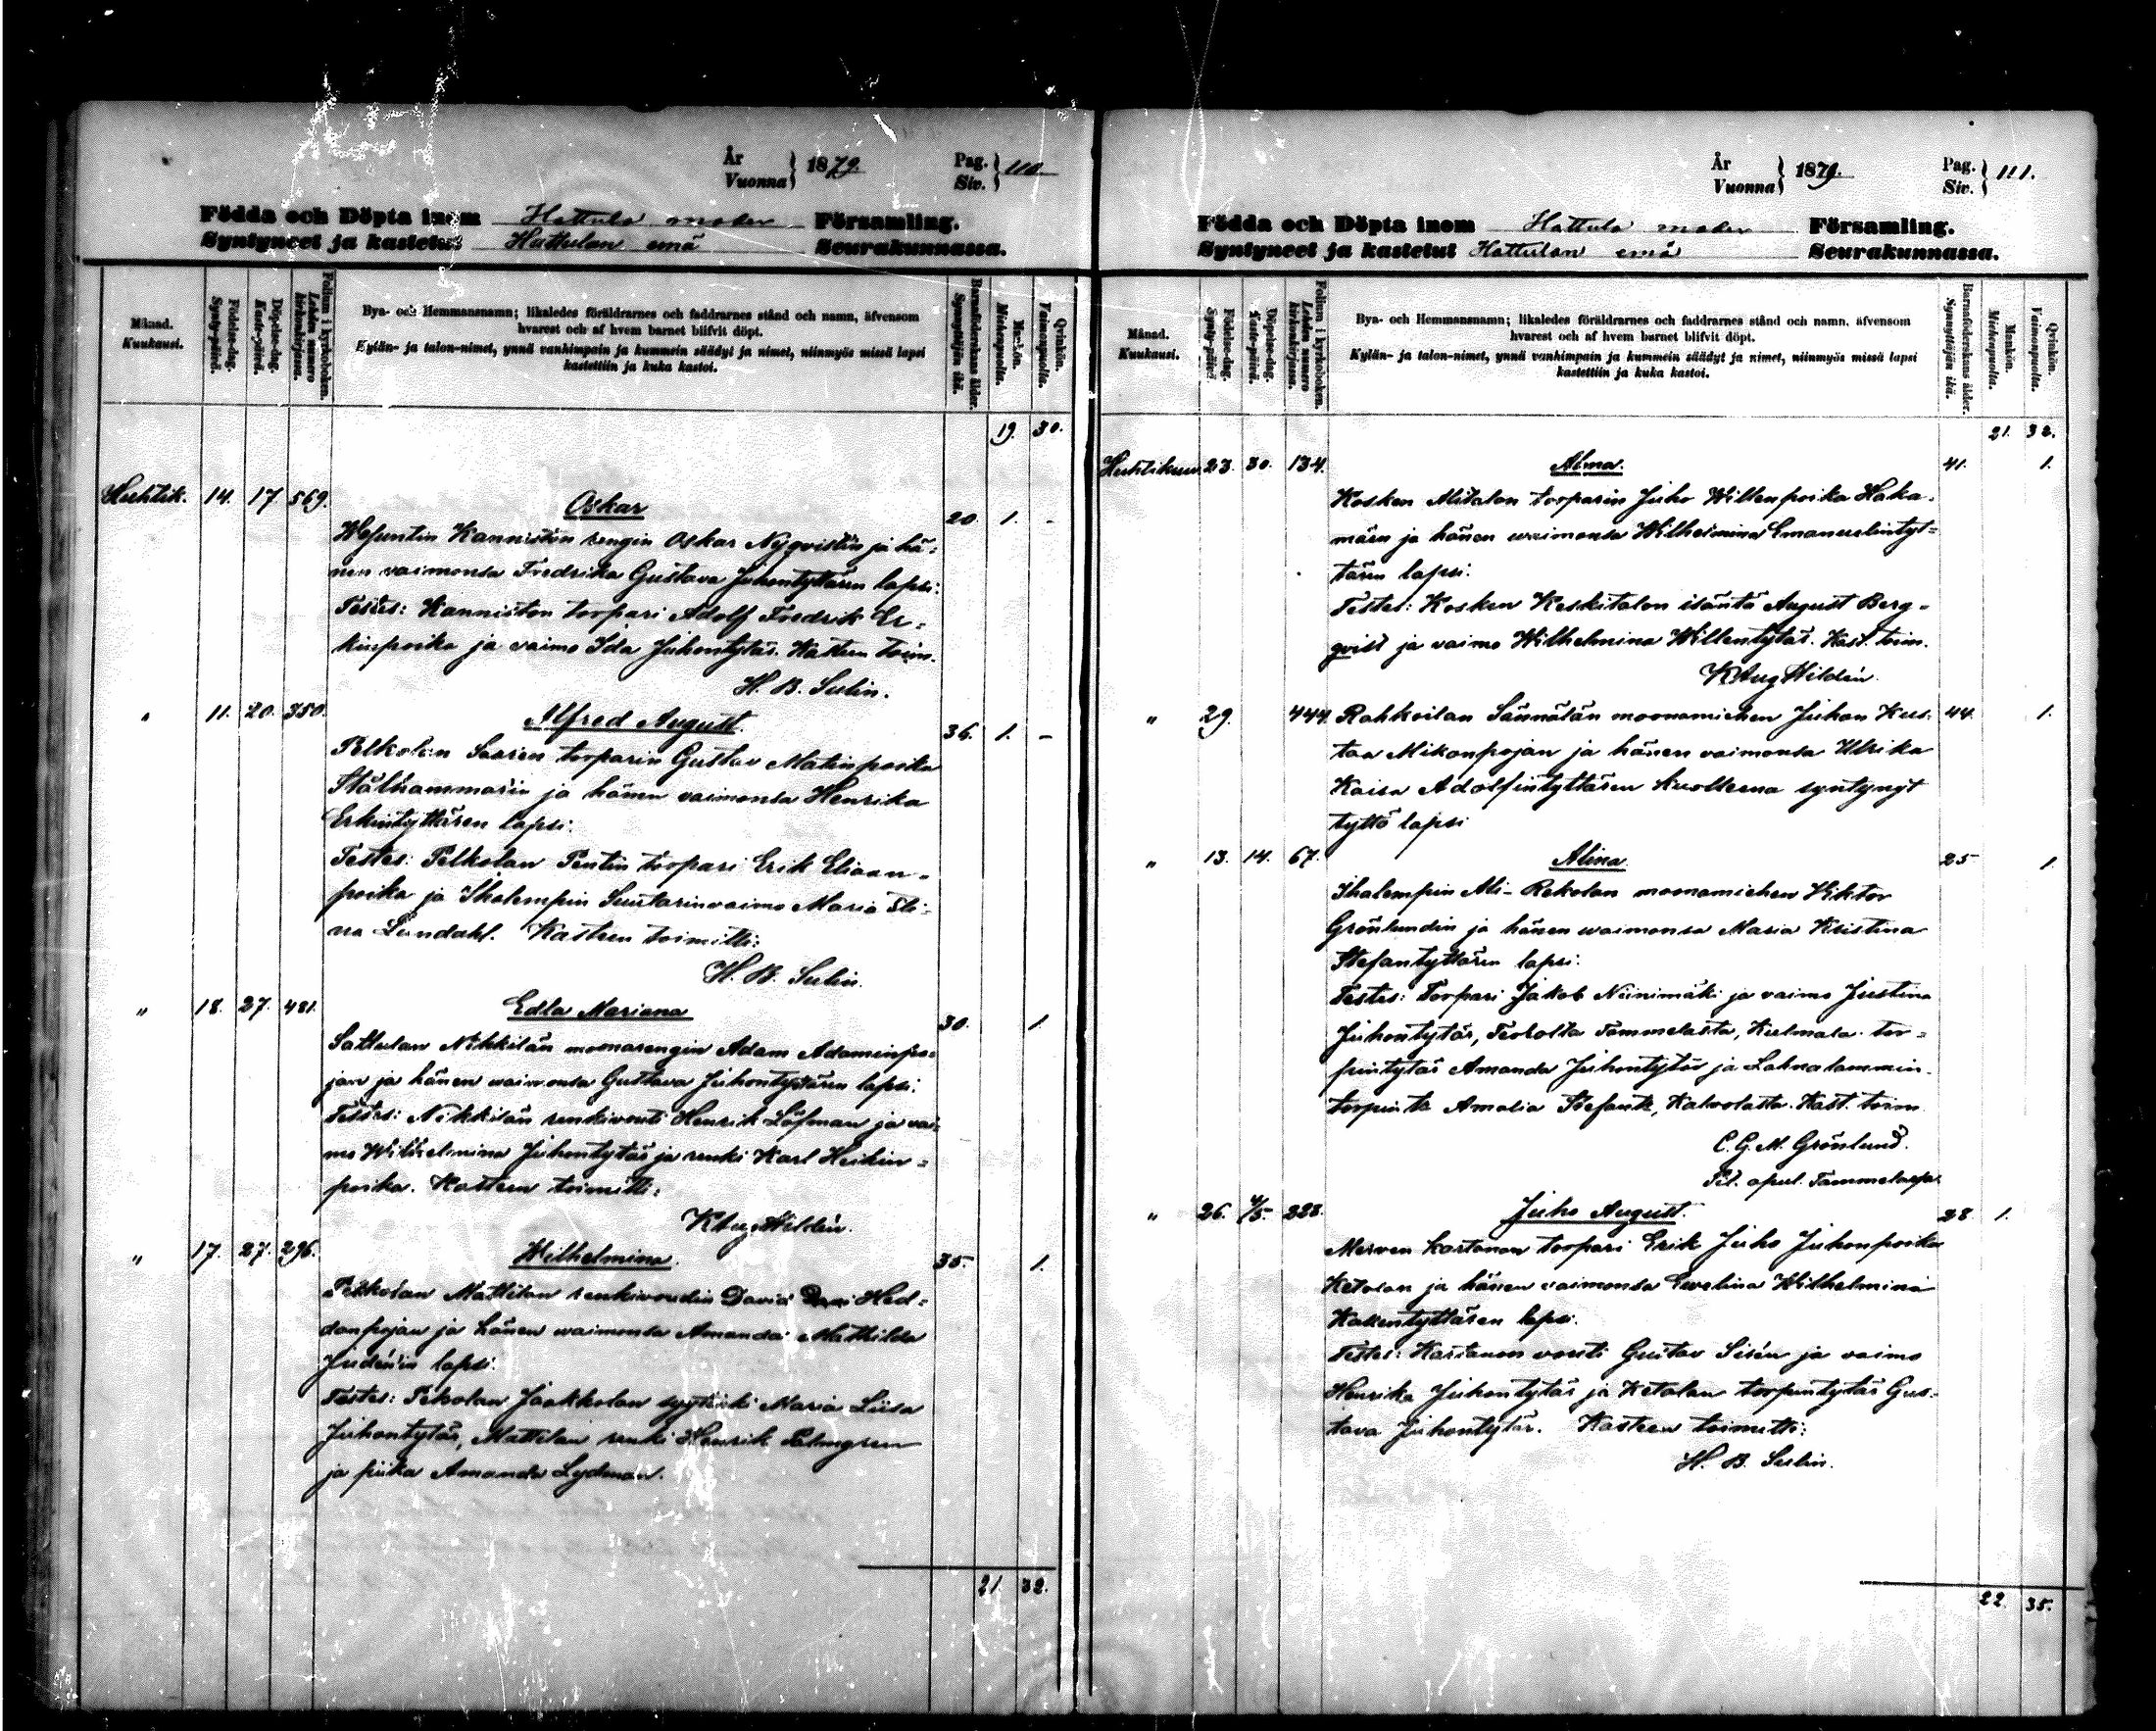 År
Vuonna } 1879. Pag.
Siv. } 110.
Födda och Döpta inom Hattula moder Församling.
Syntyneet ja kastetut Hattulan emä Seurakunnassa.
Månad.
Kuukausi.
Födelse-dag.
Synty-päivä.
Döpelse-dag.
Kaste-päivä.
Folium i kyrkoboken.
Lehden numero kirkonkirjassa.
Bya- och Hemmansnamn; likaledes föräldrarnes och faddrarnes stånd och namn, äfvensom
hvarest och af hvem barnet blifvit döpt.
Kylän- ja talon-nimet, ynnä vanhimpain ja kummein säädyt ja nimet, niinmyös missä lapsi
kastettiin ja kuka kastoi.
Barnaföderskans ålder.
Synnyttäjän ikä.
Mankön.
Miehenpuolta.
Qvinkön.
Vaimonpuolta.
19. 30.
Huhtik. 14. 17. 569. Oskar 20. 1. -
Kanniston rengin Oskar Nyqvistin ja hä-
nen vaimonsa Fredrika Gustava Juhontyttären lapsi:
Testes: Kanniston torpari Adolf Fredrik Er-
kinpoika ja vaimo Ida Juhontytär. Kasteen toim.
H. B. Sulin.
" 11. 20. 350. Alfred August. 36. 1. -
Pelkolan Saaren torparin Gustav Matinpoika
Stålhammarin ja hänen vaimonsa Henrika
Erkintyttären lapsi:
Testes: Pelkolan Pentin torpari Erik Elian-
poika ja Ihalempin Suutarinvaimo Maria Sti-
na Lundahl. Kasteen toimitti:
H. B. Sulin.
" 18. 27. 481. Edla Mariana 30. 1.
Sattulan Nikkilän moonarengin Adam Adaminpo-
jan ja hänen waimonsa Gustava Juhontyttären lapsi:
Testes: Nikkilän renkivouti Henrik Löfman ja vai-
mo Wilhelmina Juhontytär ja renki Karl Heikin-
poika. Kasteen toimitti:
K Aug Hildén.
" 17. 27. 296. Wilhelmina. 35. 1.
Pelkolan Mattilan renkivoudin David Hed-
danpojan ja hänen waimonsa Amanda Mathilda
Judénin lapsi.
Testes: Pekolan Jaakkolan Maria Liisa
Juhontytär, Mattilan renki Henrik Palmgren
ja piika Amanda Lydman.
21. 32.
År
Vuonna } 1879. Pag.
Siv. } 111.
Födda och Döpta inom Hattula moder Församling.
Syntyneet ja kastetut Hattulan emä Seurakunnassa.
Månad.
Kuukausi.
Födelse-dag.
Synty-päivä.
Döpelse-dag.
Kaste-päivä.
Folium i kyrkoboken.
Lehden numero kirkonkirjassa.
Bya- och Hemmansnamn; likaledes föräldrarnes och faddrarnes stånd och namn, äfvensom
hvarest och af hvem barnet blifvit döpt.
Kylän- ja talon-nimet, ynnä vanhimpain ja kummein säädyt ja nimet, niinmyös missä lapsi
kastettiin ja kuka kastoi.
Barnaföderskans ålder.
Synnyttäjän ikä.
Mankön.
Miehenpuolta.
Qvinkön.
Vaimonpuolta.
21. 32.
Huhtikuu. 23. 30. 134. Alma. 41. 1.
Kosken Alitalon torparin Juho Willenpoika Haka-
mäen ja hänen waimonsa Wilhelmina Emanuelintyt-
tären lapsi:
Testes: Kosken Keskitalon isäntä August Berg-
qvist ja vaimo Wilhelmina Willentytär. Kast. toim.
K Aug Hildén.
" 29. 444. Rahkoilan Sännälän moonamiehen Juhon Kus- 44. 1.
taa Mikonpojan ja hänen vaimonsa Ulrika
Kaisa Adolfintyttären kuolleena syntynyt
tyttö lapsi
" 13. 14. 67. Alina. 25 1.
Ihalempin Ali-Rekolan moonamiehen Viktor
Grönlundin ja hänen waimonsa Maria Kristina
Stefantyttären lapsi:
Testes: Torpari Jakob Niinimäki ja vaimo Justina
Juhontytär, Teorolta Tammelasta, Kulmala tor-
pantytär Amanda Juhontytär ja Lahnalammin
Amalia Stefantr, Kalvolasta. Kast. toim.
C. G. M. Grönlund.
Pit. apul. Tammelassa.
" 26. 4/5. 228. Juho August. 28. 1.
Merven kartanon torpari Erik Juho Juhonpoika
Ketolan ja hänen vaimonsa Ewelina Wilhelmina
Kallentyttären lapsi.
Testes: Kartanon vouti Gustav Sirén ja vaimo
Henrika Juhontytär ja Ketolan torpantytär Gus-
tava Juhontytär. Kasteen toimitti:
H. B. Sulin.
22. 35.